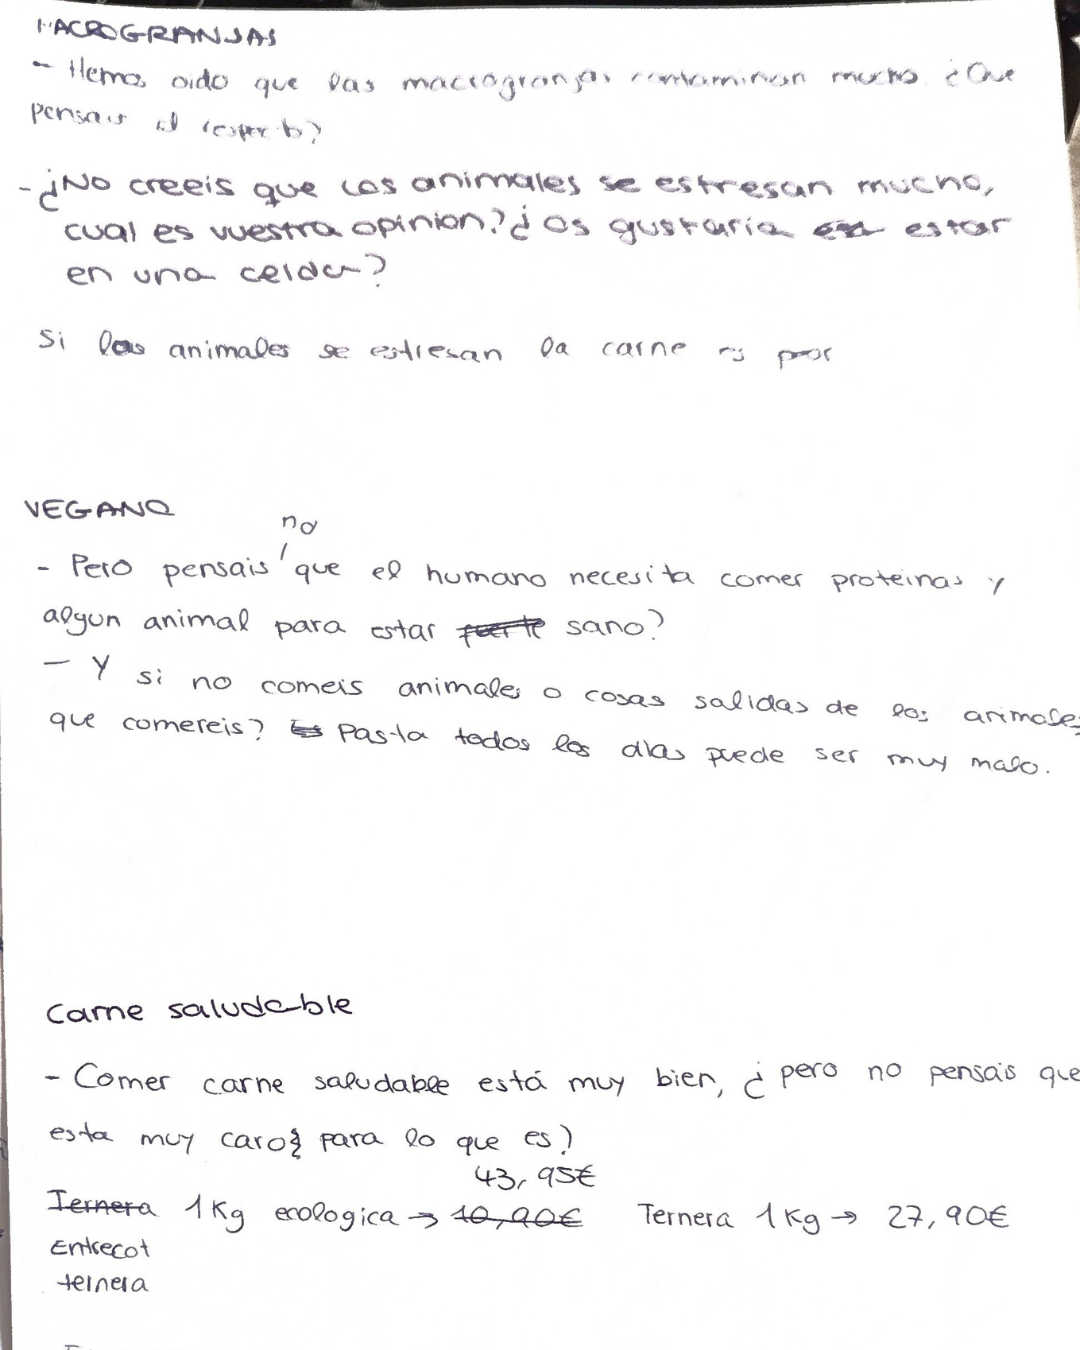 MACROGRANJAS
- Hemos oido que las macrogranjas contaminan mucho ¿Que
pensais al respecto?
- ¿No creeis que los animales se estresan mucho,
cual es vuestra opinion? ¿Os gustaria estar
en una celda?
Si los animales se estresan la carne es peor
VEGANO
no
- Pero pensais que el humano necesita comer proteinas y
algun animal para estar fuerte sano?
- Y si no comeis animales o cosas salidas de los animales
que comereis? Pasta todos los dias puede ser muy malo.
Carne saludable
- Comer carne saludable está muy bien, ¿pero no pensais que
esta muy caro para lo que es?
43,95€
Ternera 1Kg ecologica → 10,90€ Ternera 1Kg → 27,90€
Entrecot
ternera